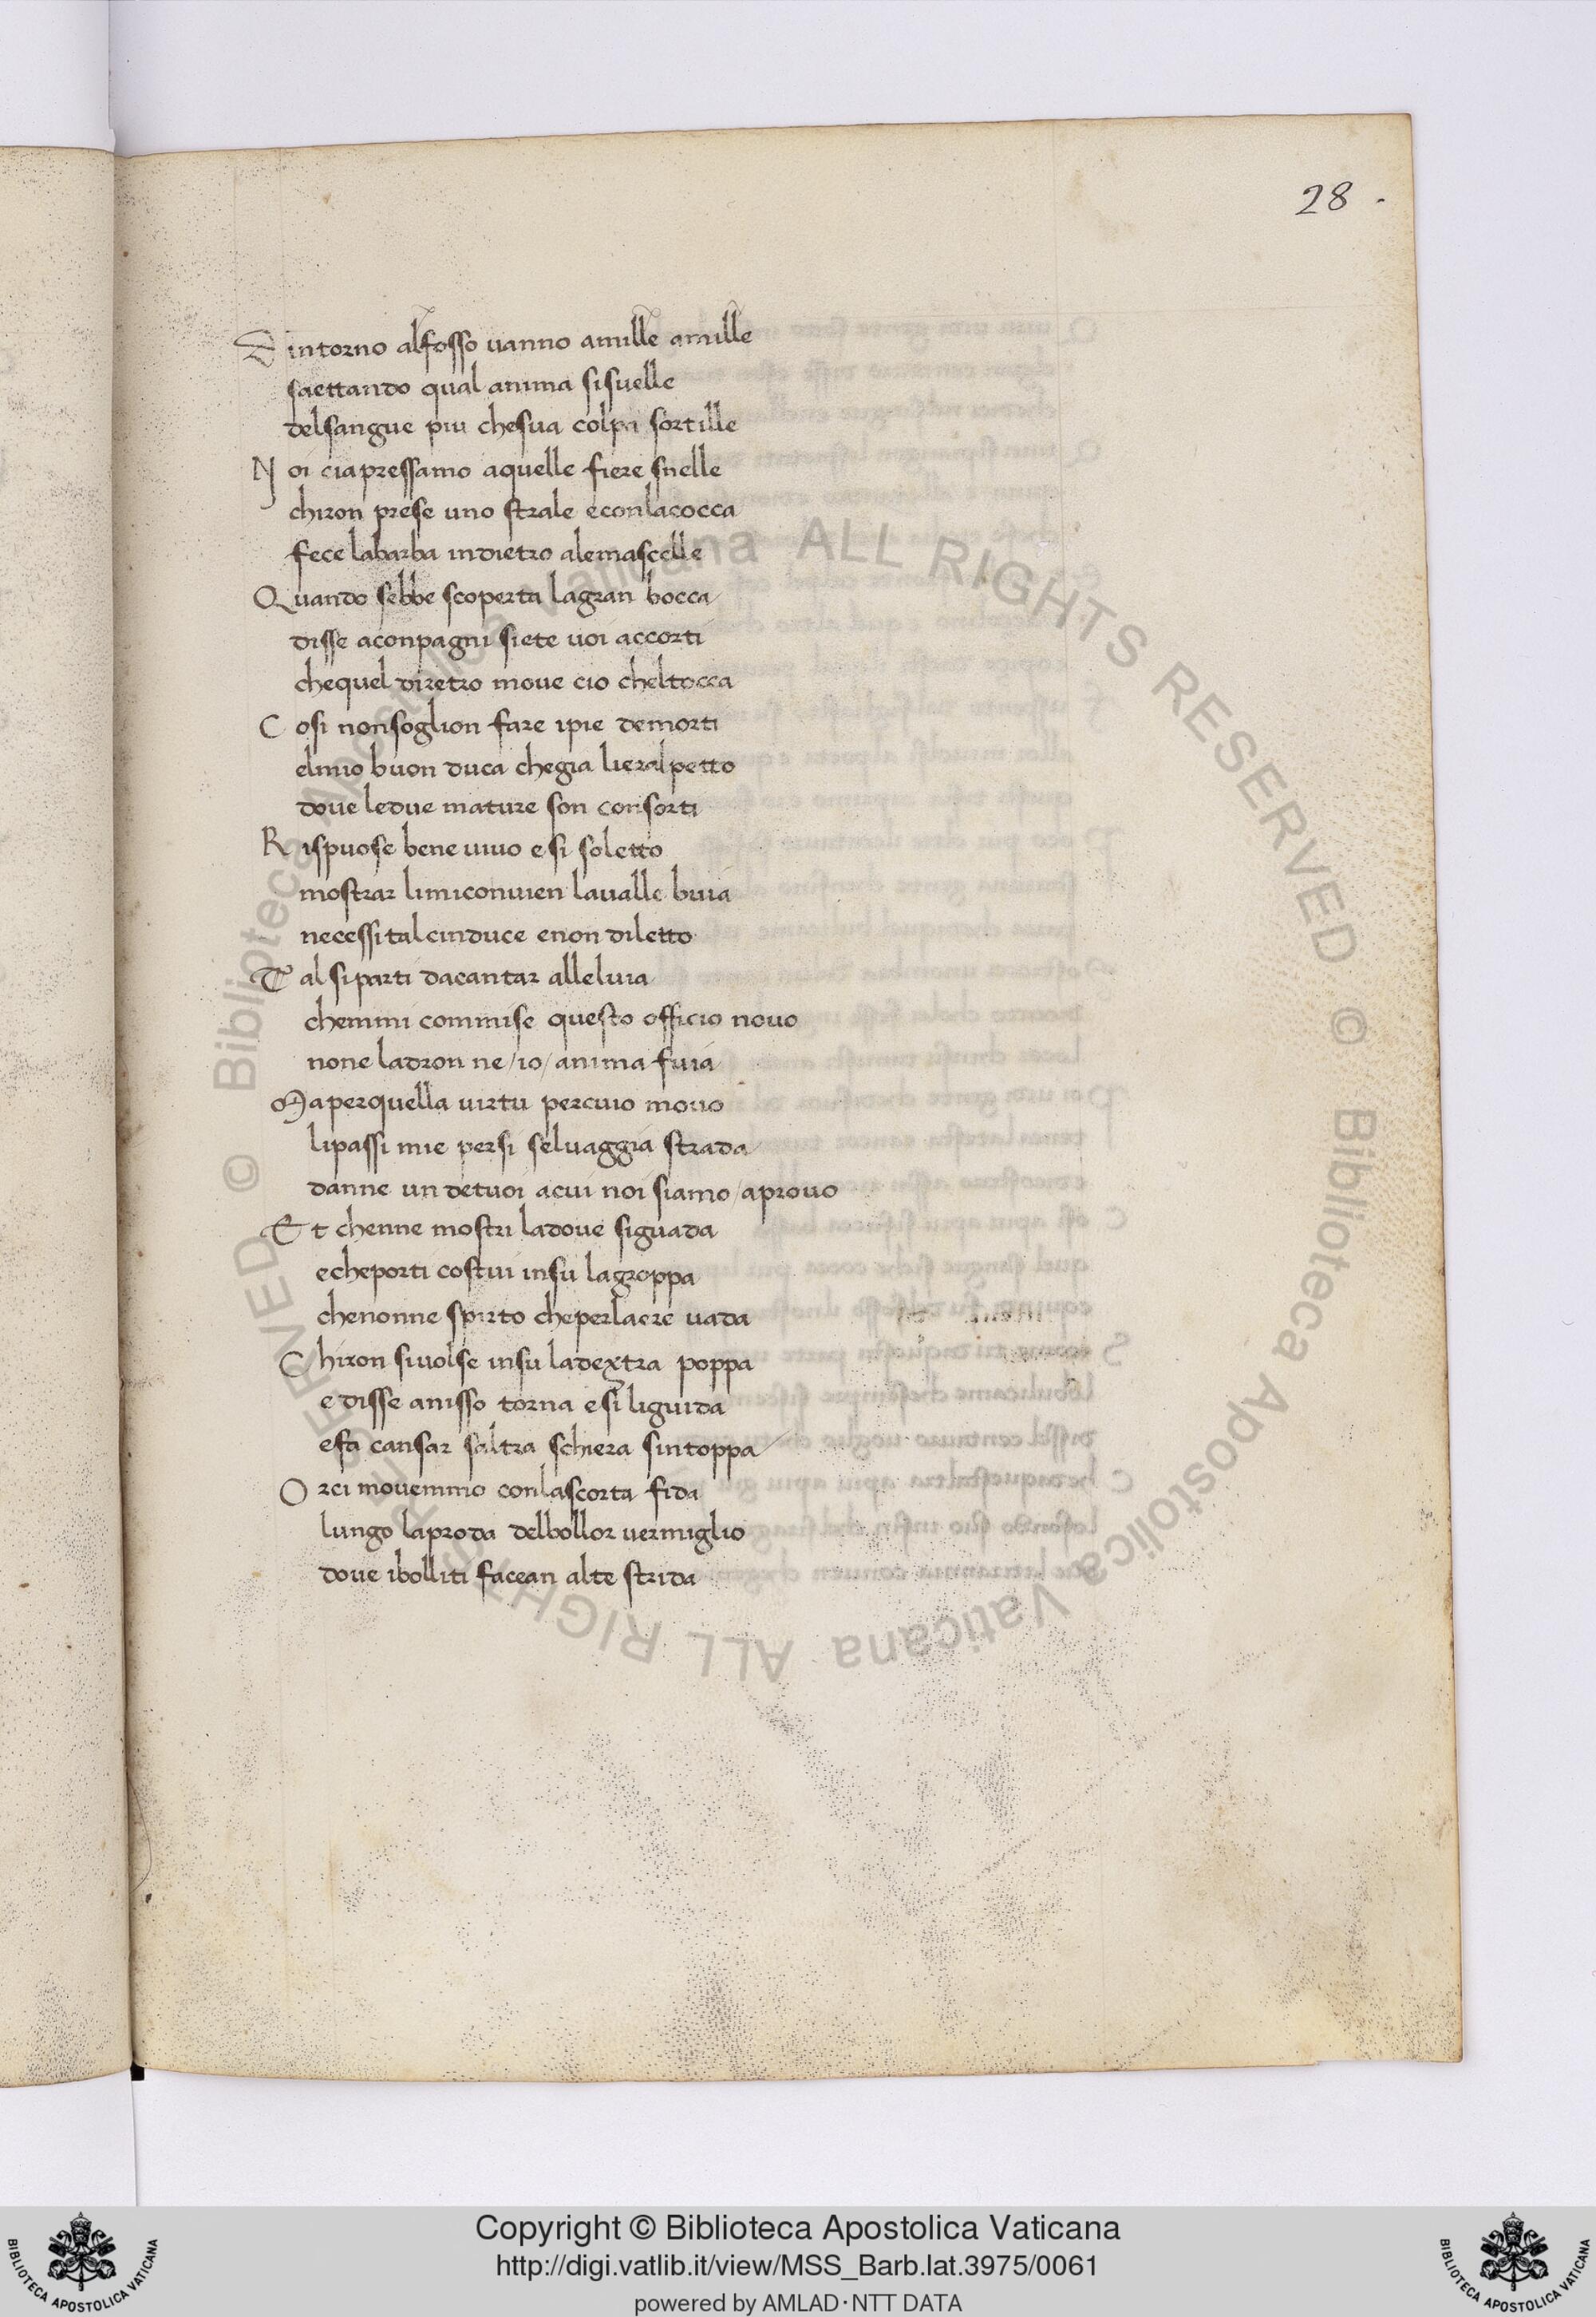 28.
D intorno alfosso uanno amille amille
saettando qual anima sisuelle
delsangue piu chesua colpa sortille
N oi ciapressamo aquelle fiere snelle
chiron prese uno strale econlacocca
fece labarba indietro alemascelle
Q uando sebbe scoperta lagran bocca
disse aconpagni siete uoi accorti
chequel diretro moue cio cheltocca
C osi nonsoglion fare ipie demorti
elmio buon duca chegia lieralpetto
doue ledue nature son consorti
R ispuose bene uiuo e si soletto
mostrar limiconuien laualle buia
necessitalcinduce enon diletto
T al siparti dacantar alleluia
chemmi commise questo officio nouo
none ladron ne/io/anima fuia
M aperquella uirtu percuio mouo
lipassi mie persi seluaggia strada
danne un detuoi acui noi siamo/aprouo
E t chenne mostri ladoue siguada
echeporti costui insu lagroppa
chenonne spirto cheperlaere uada
C hiron siuolse insu ladextra poppa
e disse anisso torna esi liguida
efa cansar saltra schiera sintoppa
O rci mouemmo conlascorta fida
lungo laproda delbollor uermiglio
doue ibolliti facean alte strida
© Biblioteca Apostolica Vaticana ALL RIGHTS RESERVED © Biblioteca Apostolica Vaticana ALL RIGHTS RESERVED
Copyright © Biblioteca Apostolica Vaticana
http://digi.vatlib.it/view/MSS_Barb.lat.3975/0061
powered by AMLAD·NTT DATA
BIBLIOTECA APOSTOLICA VATICANA
BIBLIOTECA APOSTOLICA VATICANA